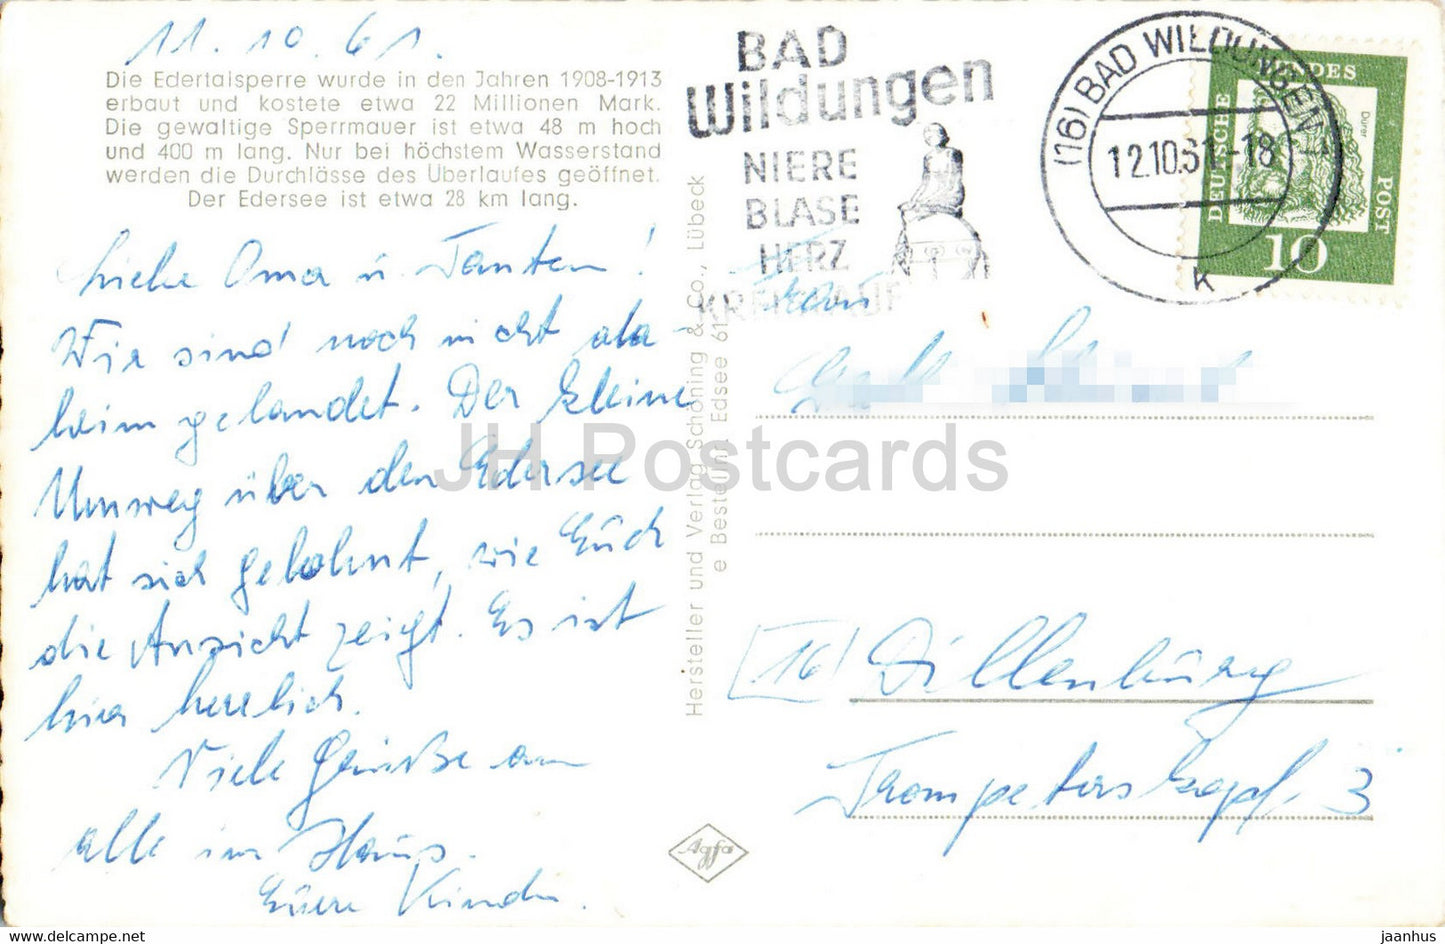 11.10.61.
Die Edertalsperre wurde in den Jahren 1908-1913
erbaut und kostete etwa 22 Millionen Mark.
Die gewaltige Sperrmauer ist etwa 48 m hoch
und 400 m lang. Nur bei höchstem Wasserstand
werden die Durchlässe des Überlaufes geöffnet.
Der Edersee ist etwa 28 km lang.
Liebe Oma u. Tanten!
Wir sind noch nicht da-
heim gelandet. Der kleine
Umweg über den Edersee
hat sich gelohnt, wie Euch
die Ansicht zeigt. Es ist
hier herrlich.
Viele Grüße an
alle im Haus.
Eure Kinder
Hersteller und Verlag Schöning & Co., Lübeck
e Bestell-Nr. Edsee 61
BAD
Wildungen
NIERE
BLASE
HERZ
KREISLAUF
(16) BAD WILDUNGEN 1
12.10.61-18
k
DEUTSCHE
BUNDES
POST
Dürer
10
Frau
(16) Dillenburg
Trompeterskopf. 3
Agfa
JH Postcards
www.delcampe.net
jaanhus